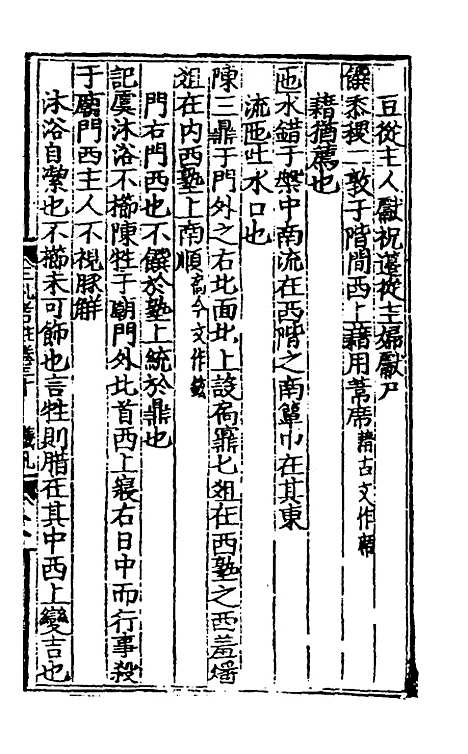 豆從主人獻祝籩從主婦獻尸
饌黍稷二敦于階間西上藉用葦席藉古文作席
藉猶薦也
匜水錯于槃中南流在西階之南簞巾在其東
流匜吐水口也
陳三鼎于門外之右北面北上設扃鼏匕俎在西塾之西羞燔
俎在內西塾上南順扃今文作鉉
門右門西也不饌於塾上統於鼎也
記虞沐浴不櫛陳牲于廟門外北首西上寢右日中而行事殺
于廟門西主人不視豚解
沐浴自潔也不櫛未可飾也言牲則腊在其中西上變吉也
三礼考註卷三十 儀礼